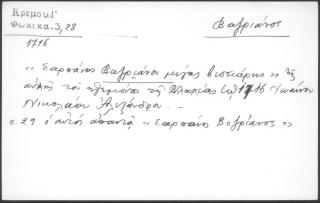 Κρεμμυδ
Φωκικά, 3, 28
Βαφριάνος
1716
« Σαρπάνος Βαφριάνο μέγας βιστιάρης » τῆς
αὐλῆς τοῦ ἡγεμόνος τῆς Βλαχίας τῷ 1716 Ἰωάννου
Νικολάου Ἀλεξάνδρου. —
σ. 29 ὁ αὐτὸς ἀπαντᾷ « Σαρπάνος Βοβριάνος »